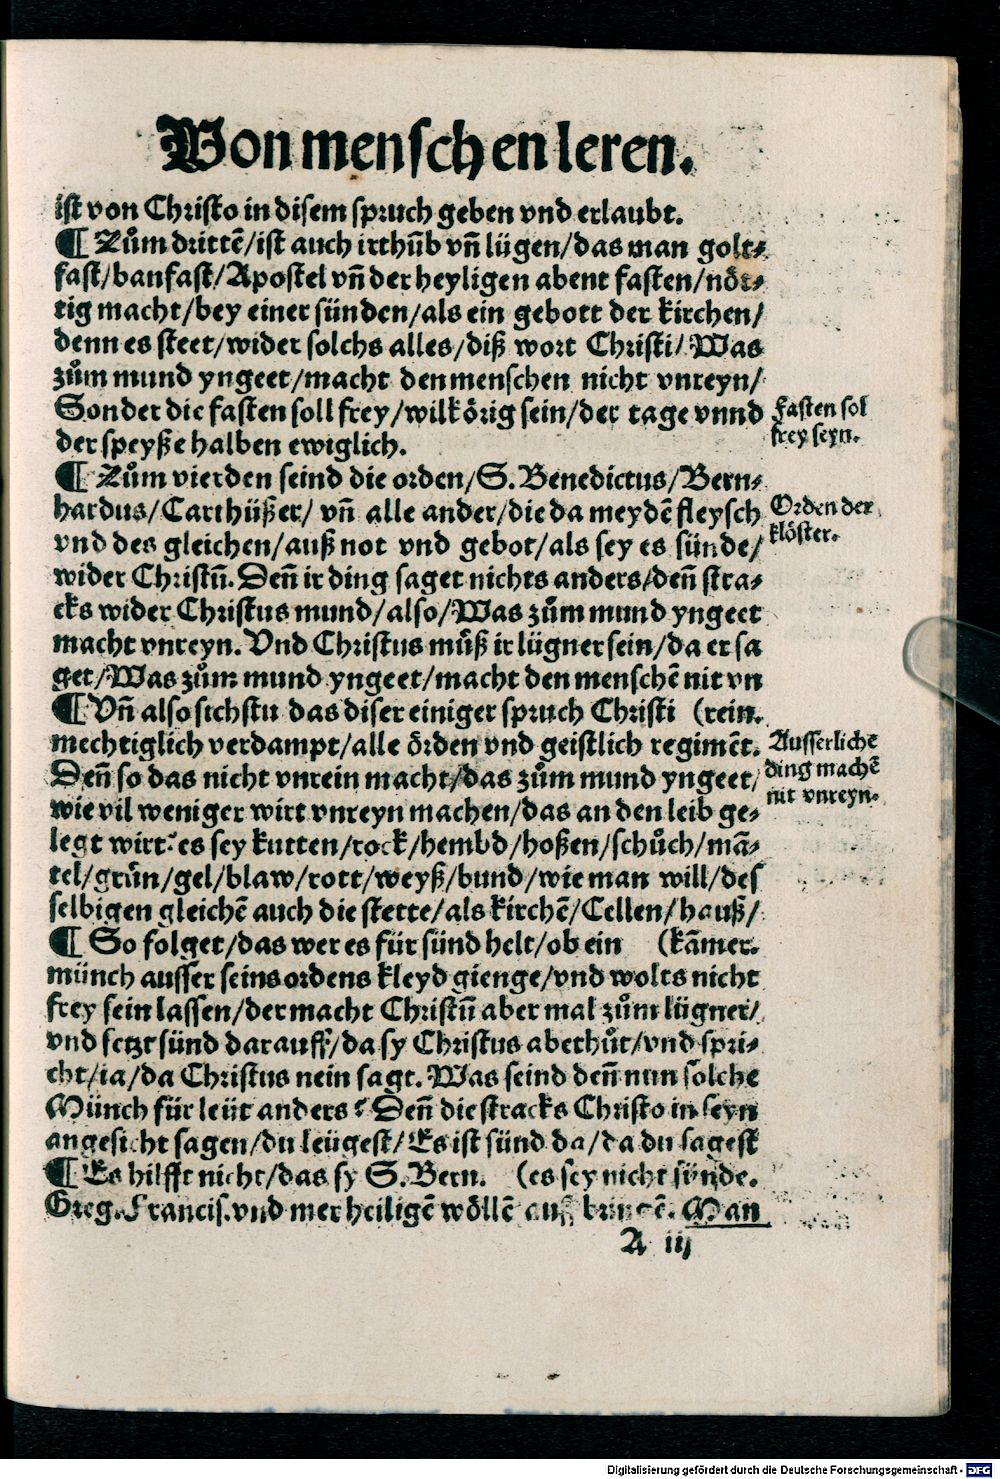 Von menschen leren.
ist von Christo in disem spruch geben vnd erlaubt.
¶ Zům drittē/ist auch irthūb vn̄ lügen/das man golt⸗
fast/banfast/Apostel vn̄ der heyligen abent fasten/nöt⸗
tig macht/bey einer sünden/als ein gebott der kirchen/
denn es steet/wider solchs alles/diß wort Christi/Was
zům mund yngeet/macht den menschen nicht vnreyn/
Sonder die fasten soll frey/wilkörig sein/der tage vnnd
der speyße halben ewiglich.
Fasten sol
frey seyn.
¶ Zům vierden seind die orden/S. Benedictus/Bern⸗
hardus/Carthüßer/ vn̄ alle ander/die da meydē fleysch
vnd des gleichen/auß not vnd gebot/als sey es sünde/
wider Christū. Den̄ ir ding saget nichts anders/den̄ stra⸗
cks wider Christus mund/also/Was zům mund yngeet
macht vnreyn. Vnd Christus můß ir lügner sein/da er sa
get/Was zům mund yngeet/macht den menschē nit vn
Orden der
klöster.
¶ Vn̄ also sichstu das diser einiger spruch Christi (rein.
mechtiglich verdampt/alle örden vnd geistlich regimēt.
Den̄ so das nicht vnrein macht/das zům mund yngeet/
wie vil weniger wirt vnreyn machen/das an den leib ge⸗
legt wirt? es sey kutten/rock/hembd/hoßen/schůch/mā⸗
tel/grün/gel/blaw/rott/weyß/bund/wie man will/des
selbigen gleichē auch die stette/als kirchē/Cellen/hauß/
Ausserliche
ding machē
nit vnreyn.
¶ So folget/das wer es für sünd helt/ob ein (kāmer.
münch ausser seins ordens kleyd gienge/vnd wolts nicht
frey sein lassen/der macht Christū aber mal zům lügner/
vnd setzt sünd darauff/da sy Christus abethůt/vnd spri⸗
cht/ia/da Christus nein sagt. Was seind den̄ nun solche
Münch für leüt anders? Den̄ die stracks Christo in seyn
angesicht sagen/du leügest/Es ist sünd da/da du sagest
¶ Es hilfft nicht/das sy S. Bern. (es sey nicht sünde.
Greg. Francis. vnd mer heiligē wöllē auß bringē. Man
A iij
Digitalisierung gefördert durch die Deutsche Forschungsgemeinschaft - DFG